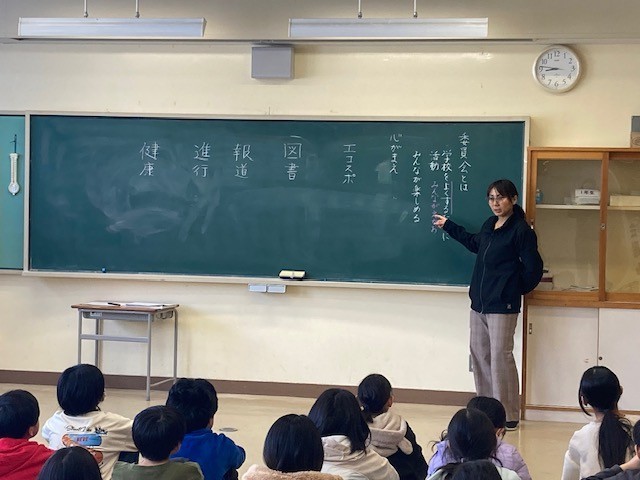 委員会とは
学校をよくする
活動
みんなが楽しめる
心がまえ
エコスポ
図書
報道
進行
健康